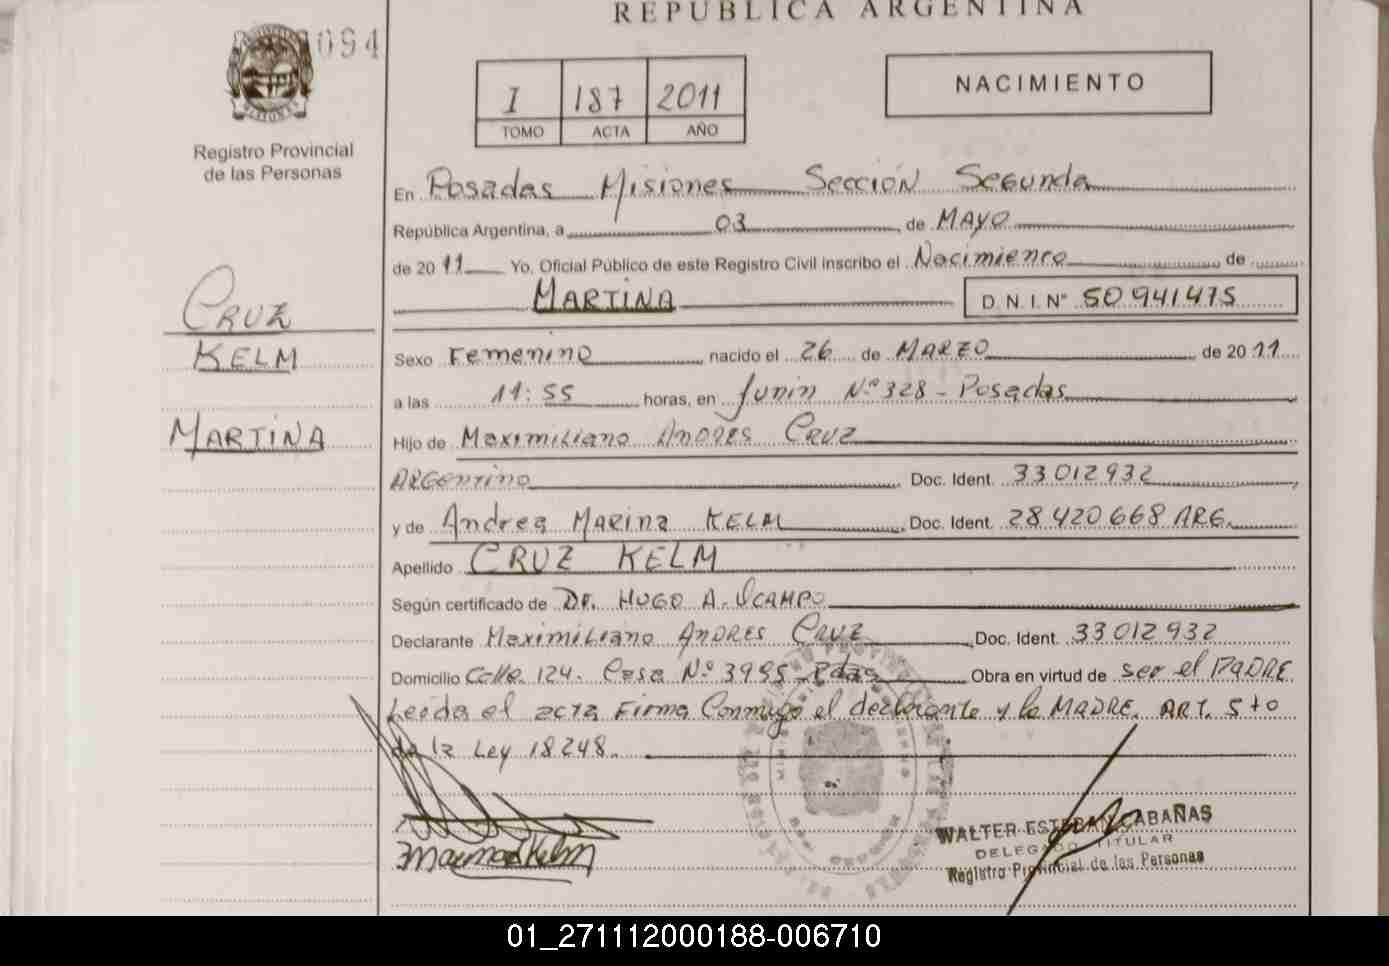 REPUBLICA ARGENTINA
094
I 187 2011
TOMO ACTA AÑO
NACIMIENTO
Registro Provincial
de las Personas
En Posadas Misiones Sección Segunda
República Argentina, a 03 de MAYO
de 2011 Yo, Oficial Público de este Registro Civil inscribo el Nacimiento de
MARTINA D.N.I. N° 50 941475
CRUZ
KELM
MARTINA
Sexo Femenino nacido el 26 de MARZO de 2011
a las 11:55 horas, en Junin N° 328 - Posadas
Hijo de Maximiliano ANDRES CRUZ
ARGENTINO Doc. Ident. 33012932
y de Andrea MARINA KELM Doc. Ident. 28420668 ARG.
Apellido CRUZ KELM
Según certificado de Dr. HUGO A. OCAMPO
Declarante Maximiliano ANDRES CRUZ Doc. Ident. 33012932
Domicilio Calle 124. Casa N° 3995 - Pdas Obra en virtud de ser el PADRE
Leída el acta Firma Conmigo el declarante y la MADRE. ART. 5to
de la Ley 18248.
WALTER ESTEBAN CABAÑAS
DELEGADO TITULAR
Registro Provincial de las Personas
01_271112000188-006710